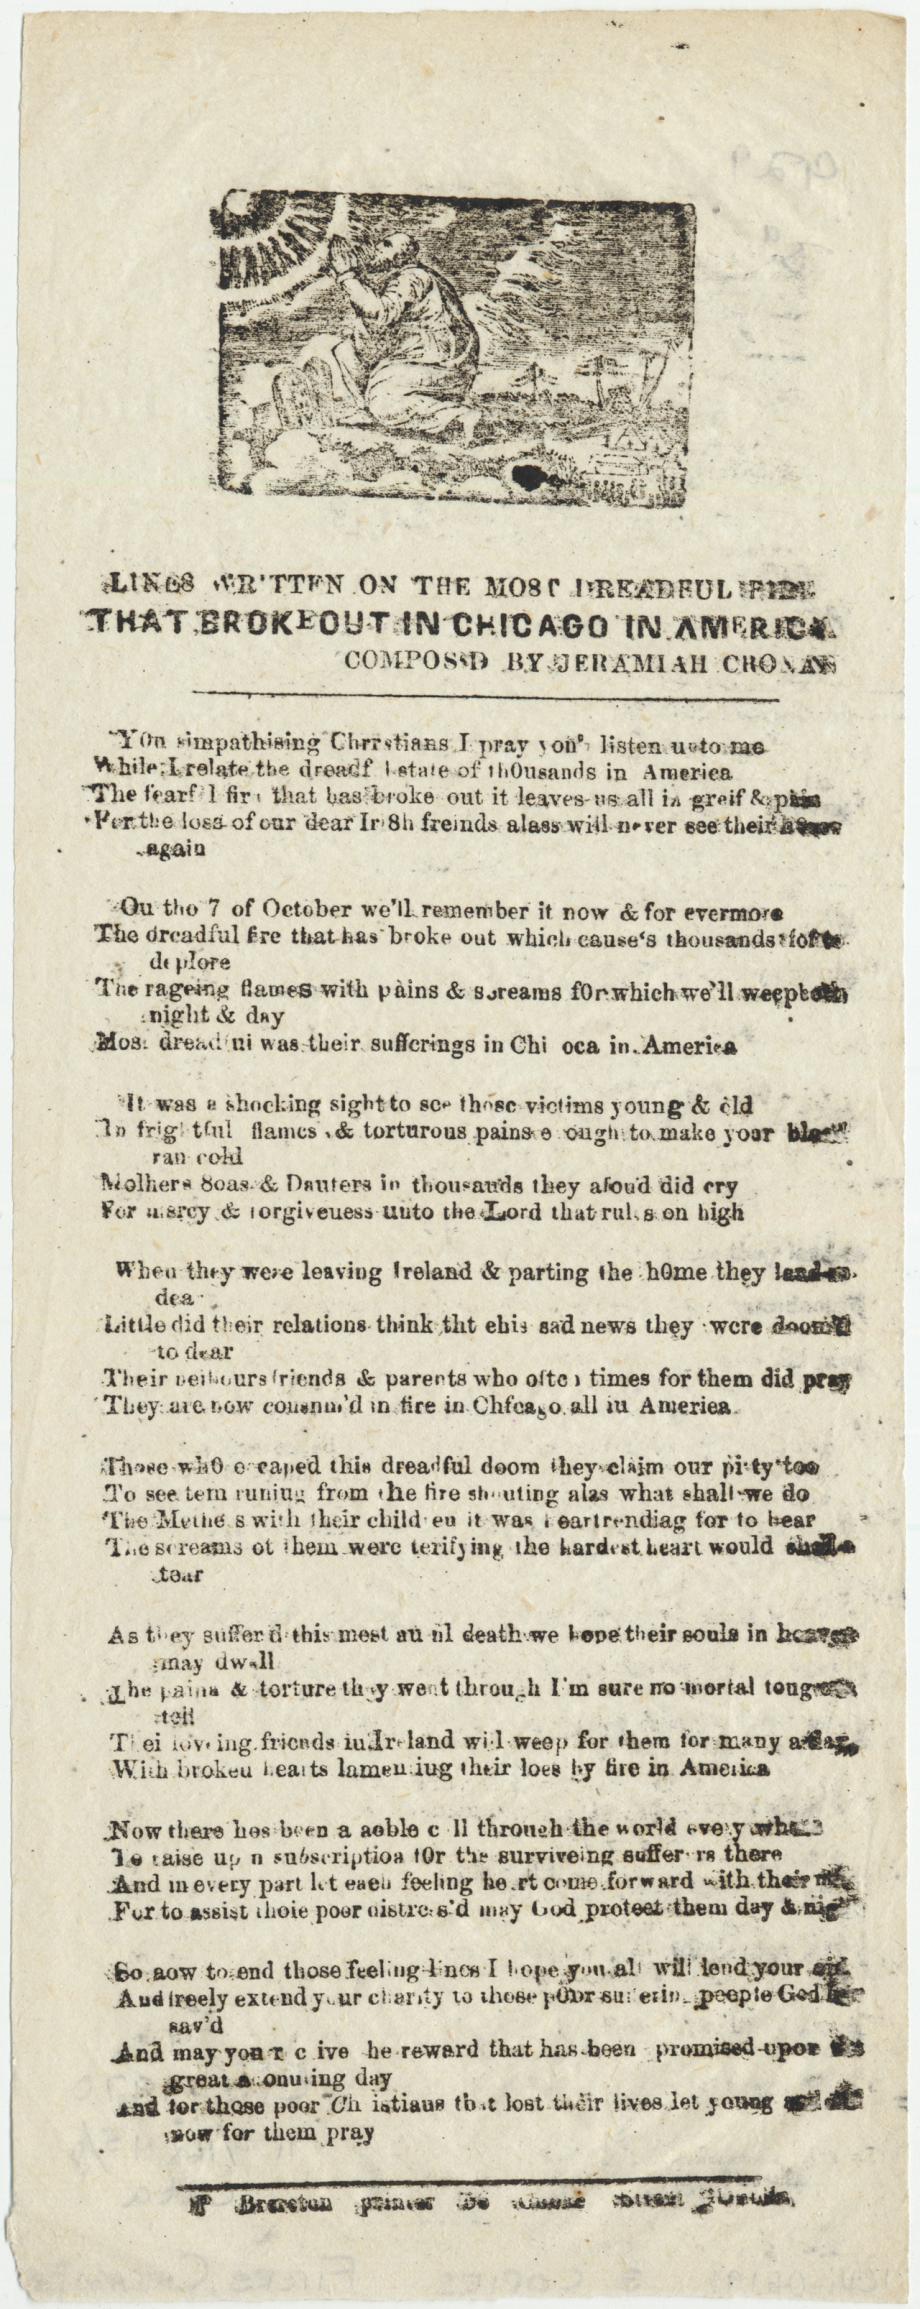 LINES WRITTEN ON THE MOST DREADFUL FIRE
THAT BROKE OUT IN CHICAGO IN AMERICA
COMPOS'D BY JERAMIAH CRONAN
YOu simpathising Chrrstians I pray you' listen unto me
While I relate the dreadf l state of thOusands in America
The fearf l fire that has broke out it leaves us all in greif & pain
For the loss of our dear Ir8h freinds alass will never see their
again
Ou tho 7 of October we'll remember it now & for evermore
The dreadful fire that has broke out which cause's thousands for to
deplore
The rageing flames with pains & screams fOr which we'll weep both
night & day
Most dreadful was their sufferings in Chi oca in America
It was a shocking sight to see those victims young & old
In frightful flames & torturous pains e ough to make your blood
ran cold
Molhers 8oas & Dauters in thousands they aloud did cry
For mercy & forgiveuess unto the Lord that rules on high
When they were leaving Ireland & parting the hOme they
dea
Little did their relations think tht ehis sad news they were doom'd
to dear
Their neibours friends & parents who often times for them did pray
They are now consum'd in fire in Chfcago all iu Ameriea
Those whO escaped this dreadful doom they claim our pitty too
To see tem runiug from the fire shouting alas what shall we do
The Mothe s with their child eu it was heartrendiag for to hear
The screams of them were terifying the hardest heart would
tear
As they suffer'd this most au ul death we hope their souls in heaven
may dwell
The pains & torture they went through I'm sure no mortal tongue
tell
Thei loveing friends iu Ireland will weep for them for many a day
With brokeu hearts lamentiug their loes by fire in America
Now there hes been a aoble c ll through the world every where
To raise up a subscriptioa fOr the surviveing sufferers there
And in every part let each feeling heart come forward with their
For to assist thoie poor distress'd may God protect them day & nig
So aow to end those feeling lines I hope you all will lend your
Aud freely extend your charity to those pOor suffering peeple God
sav'd
And may you r c ive he reward that has been promised upon
great a onuting day
And for those poor Ch istiaus that lost their lives let young
now for them pray
P Brereton printer Street Dublin